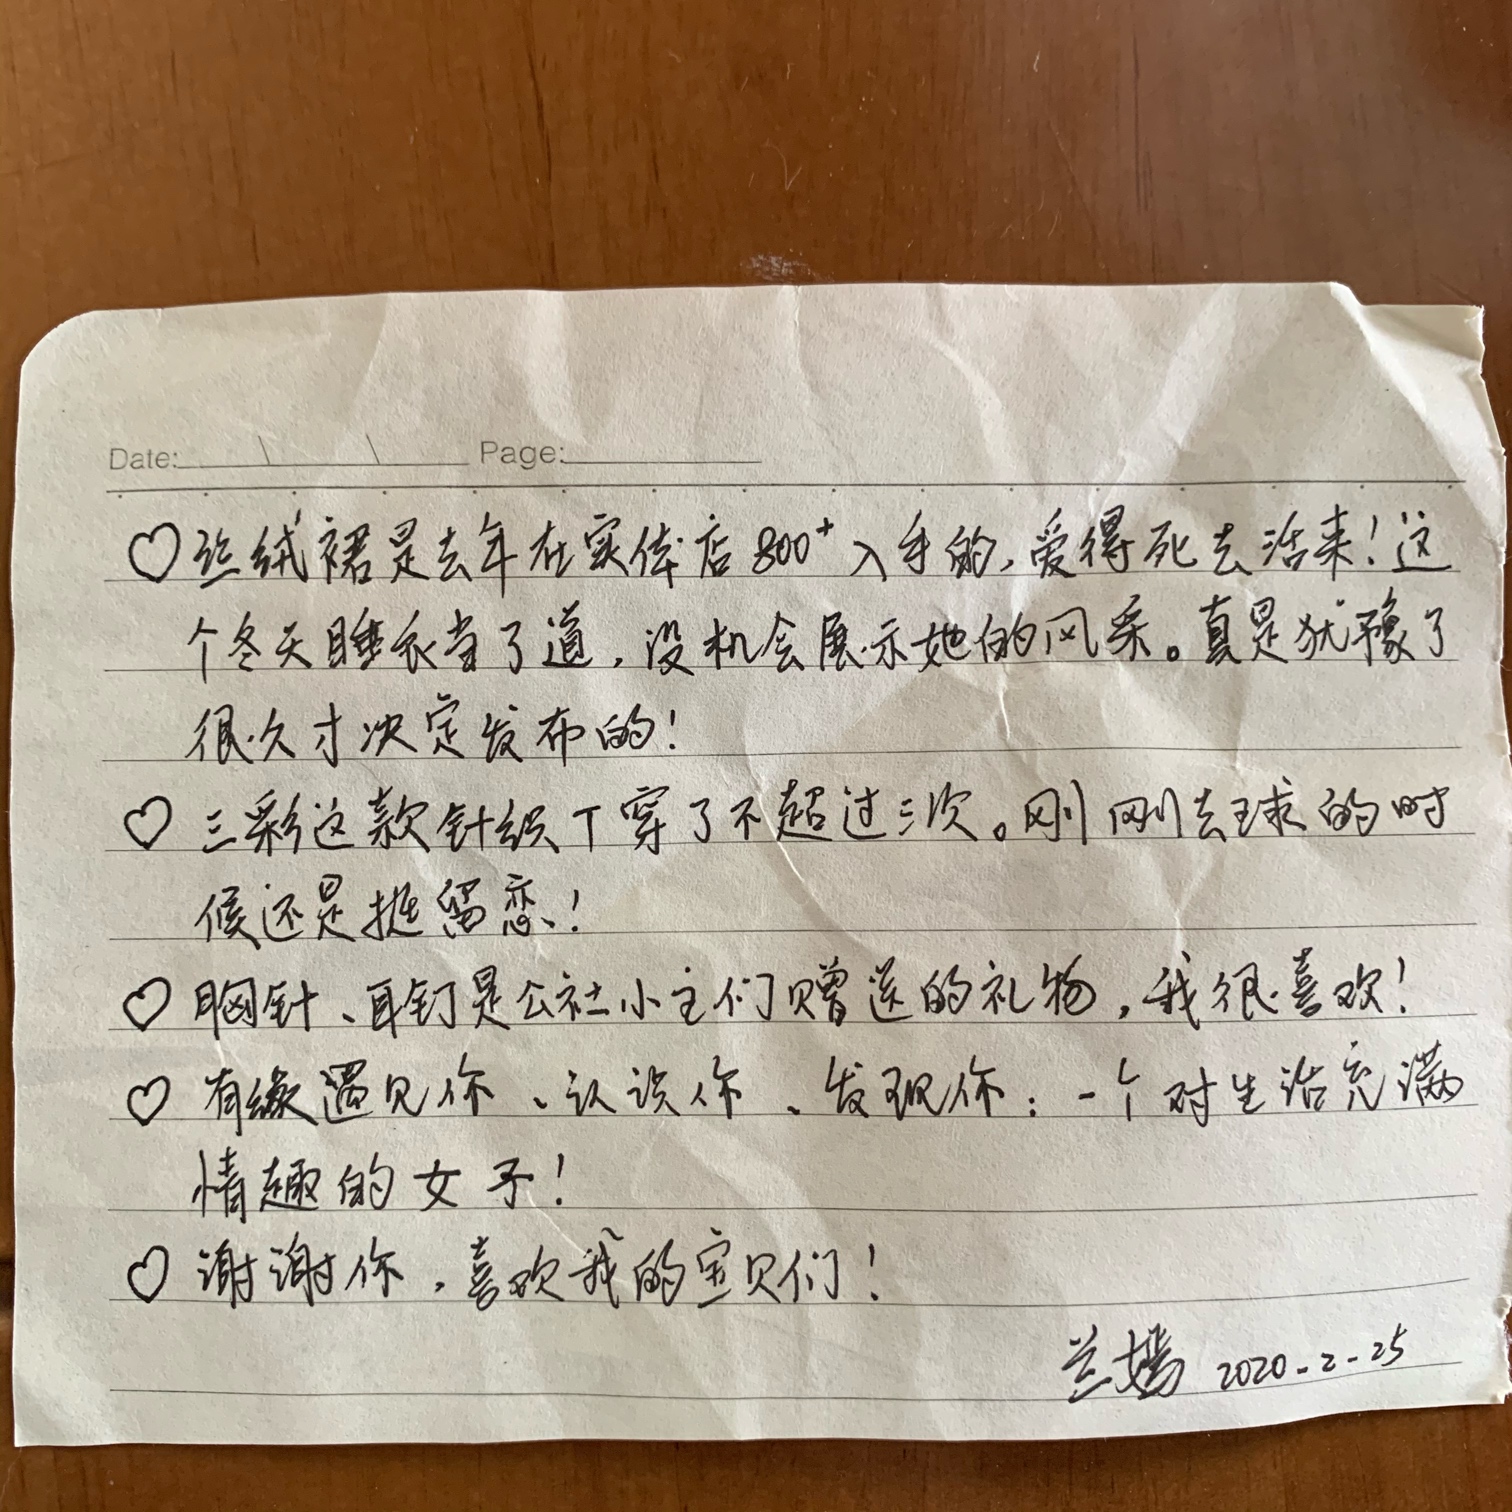 Date: Page:
♡ 丝绒裙是去年在实体店800+入手的,爱得死去活来!这
个冬天睡衣当了道,没机会展示她的风采。真是犹豫了
很久才决定发布的!
♡ 三彩这款针织T穿了不超过三次。刚刚去球的时
候还是挺留恋!
♡ 胸针、耳钉是公社小主们赠送的礼物,我很喜欢!
♡ 有缘遇见你、认识你、发现你:一个对生活充满
情趣的女子!
♡ 谢谢你,喜欢我的宝贝们!
兰嫣 2020-2-25